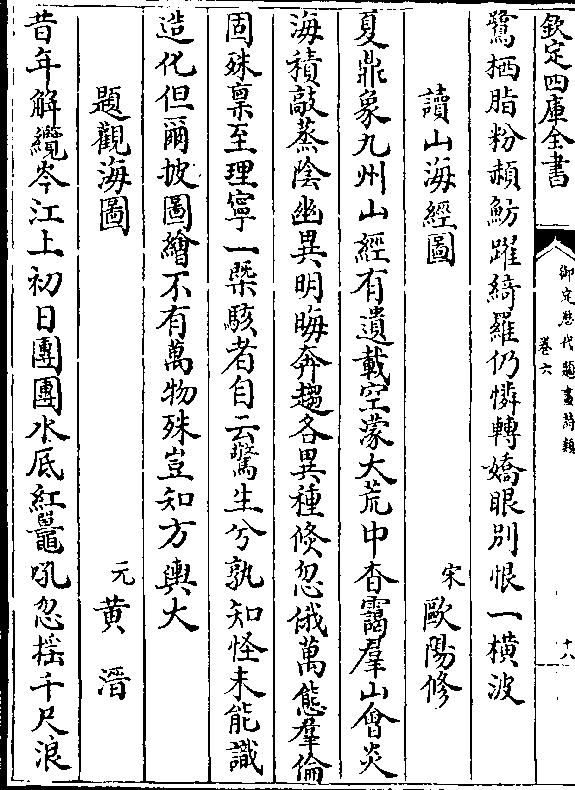 欽定四庫全書
御定歴代題畫詩類
卷六
十八
鷺栖脂粉頳魴躍綺羅仍憐轉嬌眼别恨一横波
讀山海經圖
宋歐陽修
夏鼎象九州山經有遺載空濛大荒中杳靄羣山會炎
海積敲蒸陰幽異明晦奔趨各異種倐忽俄萬態羣倫
固殊禀至理寧一槩駭者自云驚生兮孰知怪未能識
造化但爾披圖繪不有萬物殊豈知方輿大
題觀海圖
元黄溍
昔年解纜岑江上初日團團水底紅鼉吼忽摇千尺浪